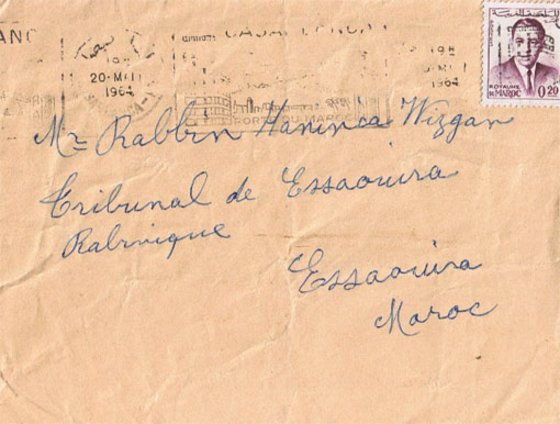 CASABLANCA
20-MAI
1964
1964
PORT DU MAROC
ROYAUME
DU MAROC
0,20
Mr Rabbin Haninca Wizgan
Tribunal de Essaouira
Rabinique
Essaouira
Maroc